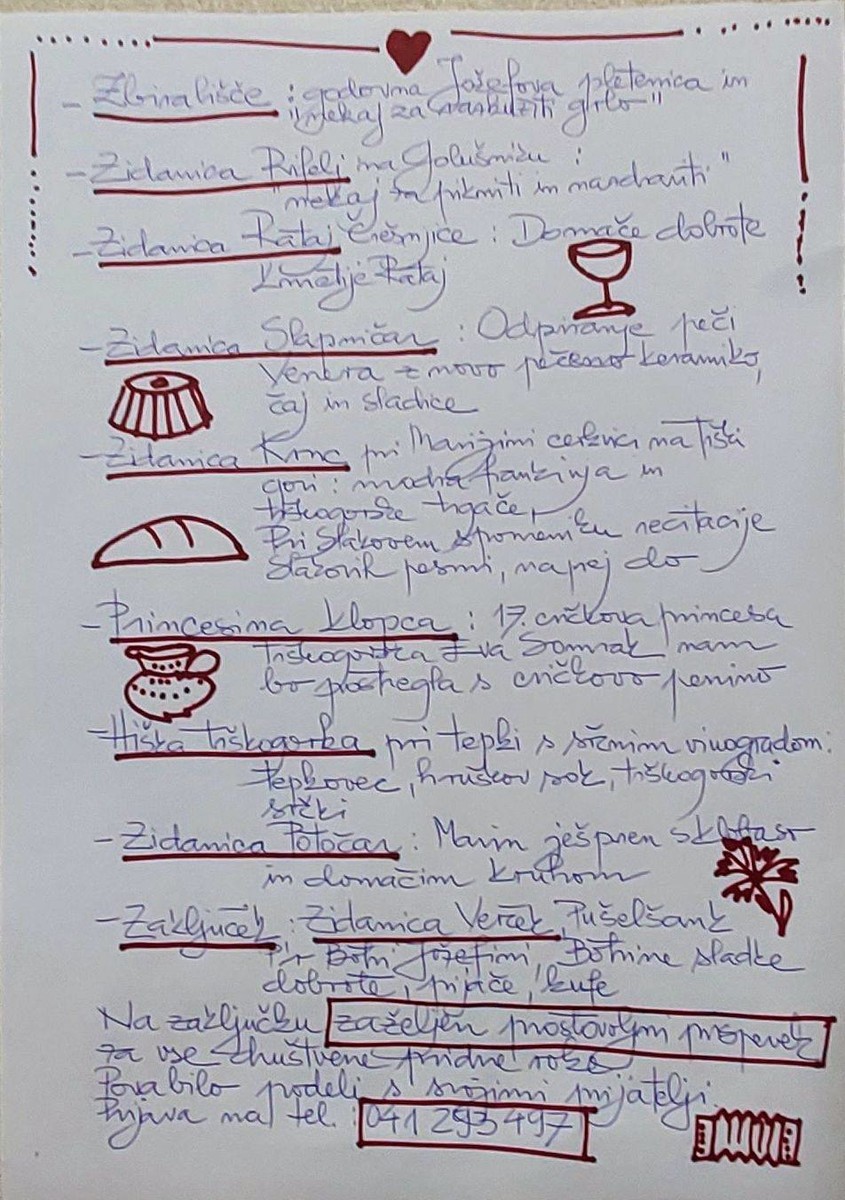 - Zbirališče : godovna Jožefova pletenica in
"nekaj za razkužiti grlo"
- Zidanica Rifelj na Golušniku :
"nekaj za prikmiti in
- Zidanica Rataj Češnjice : Domače dobrote
kmetije Rataj
- Zidanica Slapničar : Odpiranje peči
Venera z novo pečeno keramiko,
čaj in sladice
- Zidanica Krnc pri Marijini cerkvici na Tiški
gori : modra frankinja in
tiškogorske trgače,
Pri Slakovem spomeniku recitacije
Slakovih pesmi, naprej do
- Princesina klopca : 17. cvičkova princesa
tiškogorska Eva Somrak nam
bo postregla s cvičkovo penino
- Hiška tiškogorka pri tepki s srčnim vinogradom:
tepkovec, hruškov sok, tiškogorski
srčki
- Zidanica Potočar : Marin ješpren s klobaso
in domačim kruhom
- Zaključek : Zidanica Verček, Pušelšank
Pr Botri Jožefini, Botrine sladke
dobrote, pijače, kufe
Na zaključku zaželjen prostovoljni prispevek
za vse društvene pridne roke
Povabilo podeli s svojimi prijatelji.
Prijava na tel. : 041 293 497